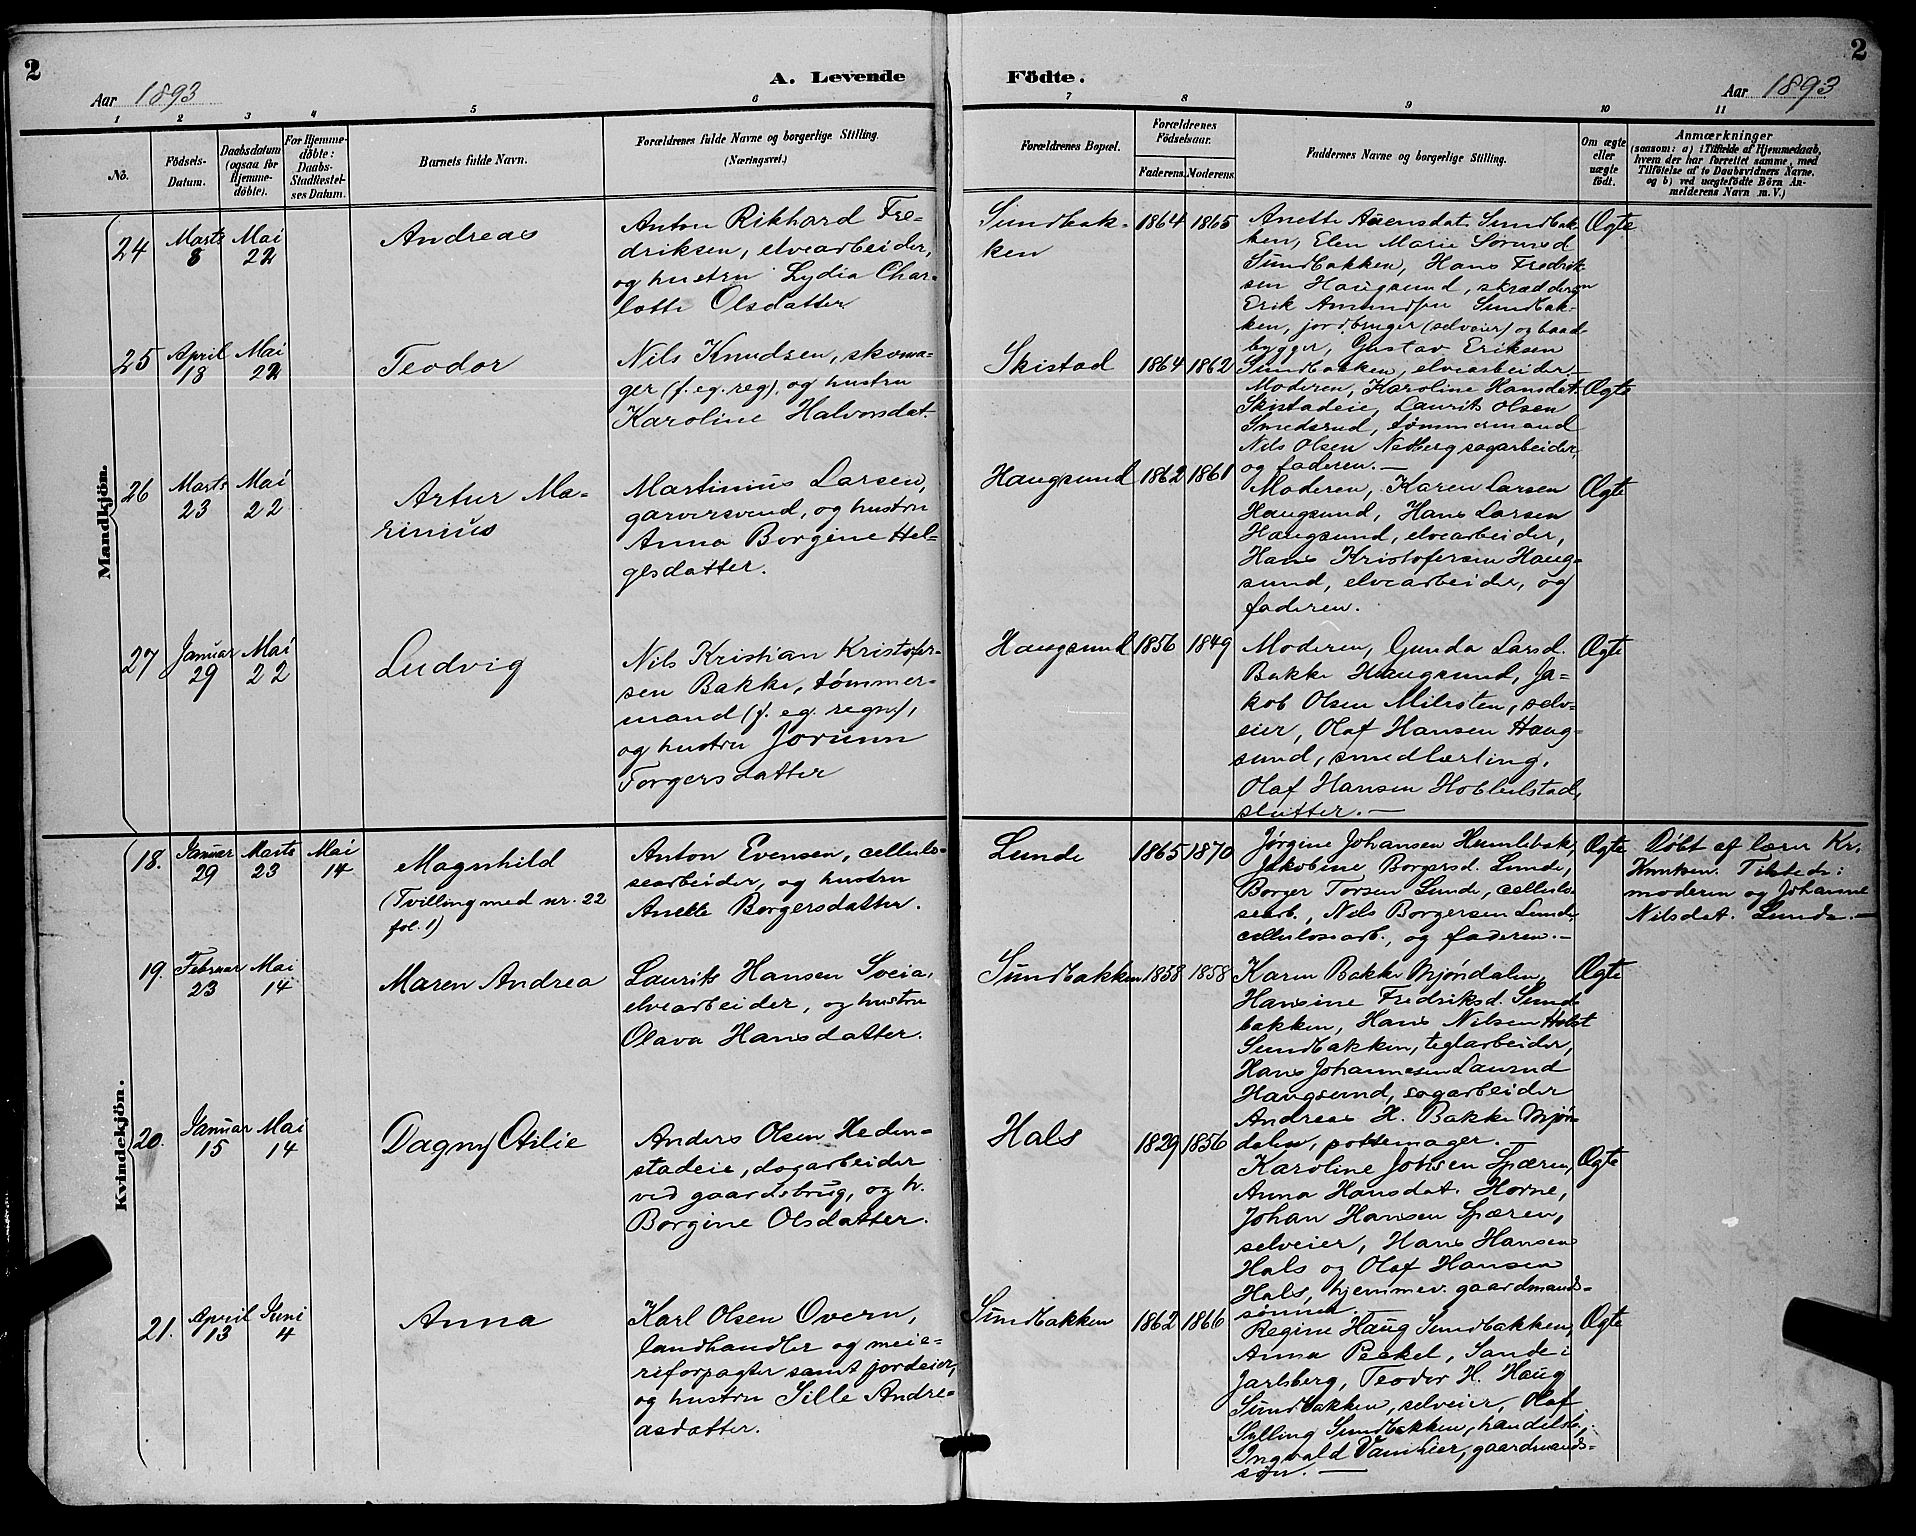 2
A. Levende
Födte.
2
Aar 1893
Aar 1893
1
2
3
4
5
6
7
8
9
10
11
No.
Födsels-
Datum.
Daabsdatum
(ogsaa for
Hjemme-
döbte).
For Hjemme-
döbte:
Daabs-
Stadfæstel-
ses Datum.
Barnets fulde Navn.
Forældrenes fulde Navne og borgerlige Stilling.
(Næringsvei.)
Forældrenes Bopæl.
Forældrenes
Födselsaar.
Faderens.
Moderens.
Faddernes Navne og borgerlige Stilling.
Om ægte
eller
uægte
födt.
Anmærkninger
(saasom: a) i Tilfælde af Hjemmedaab,
hvem der har forrettet samme, med
Tilföielse af to Daabsvidners Navne.
og b) ved uægtefödte Börn An-
melderens Navn m. V.)
Mandkjön.
24
Marts
8
Mai
22
Andreas
Anton Rikhard Fre-
driksen, elvearbeider,
og hustru Lydia Char-
lotte Olsdatter
Sundbak-
ken
1864
1865
Anette Auensdat. Sundbak-
ken, Elen Marie Sörensd.
Sundbakken, Hans Fredrik-
sen Haugsund, skrædder,
Erik Amundsen Sundbak-
ken, jordbruger (selveier) og baad-
bygger, Gustav Eriksen
Sundbakken, elvearbeider.—
Ægte
25
April
18
Mai
22
Teodor
Nils Knudsen, skoma-
ger (f. eg. reg). og hustru
Karoline Halvorsdat.
Skistad
1864
1862
Moderen, Karoline Hansdat.
Skistadeie, Laurits Olsen
Smedsrud, tømmermand
Nils Olsen Nedberg sagarbeider,
og faderen.—
Ægte
26
Marts
23
Mai
22
Artur Ma-
rinius
Martinius Larsen,
garversvend, og hustru
Anna Borgine Hel-
gesdatter.
Haugsund
1862
1861
Moderen, Karen Larsen
Haugsund, Hans Larsen
Haugsund, elvearbeider,
Hans Kristofersen Haug-
sund, elvearbeider, og
faderen.
Ægte
27
Januar
29
Mai
22
Ludvig
Nils Kristian Kristofer-
sen Bakke, tømmer-
mand (f. eg. regn),
og hustru Jorunn
Torgersdatter
Haugsund
1856
1849
Moderen, Gunda Larsd.
Bakke Haugsund, Ja-
kob Olsen Milesten, selv-
eier, Olaf Hansen Haug-
sund, smedlærling,
Olaf Hansen Hobbelstad,
slutter.—
Ægte
Kvindekjön.
18.
Januar
29
Marts
23
Mai
14
Magnhild
(Tvilling med nr. 22
fol. 1)
Anton Evensen, cellulo-
searbeider, og hustru
Anette Borgersdatter.
Lunde
1865
1870
Jørgine Johansen Humlebæk,
Jakobine Borgersd. Lunde,
Borger Torsen Lunde, cellulo-
searb., Nils Borgersen Lunde,
cellulosearb., og faderen.—
Ægte
Døbt af lærer Kr.
Knutsen. Tilstede:
moderen og Johanne
Nilsdat. Lunde.—
19.
Februar
23
Mai
14
Maren Andrea
Laurits Hansen Sveia,
elvearbeider, og hustru
Olava Hansdatter.
Sundbakken
1858
1858
Karen Bakke Mjøndalen,
Hansine Fredriksd. Sund-
bakken, Hans Nilsen Holst
Sundbakken, teglarbeider,
Hans Johannesen Laurud
Haugsund, sagarbeider
Andreas H. Bakke Mjøn-
dalen, pottemager.—
Ægte
20.
Januar
15
Mai
14
Dagny Otilie
Anders Olsen Heden-
stadeie, dagarbeider
ved gaardsbrug, og h.
Borgine Olsdatter.
Hals
1829
1856
Karoline Johsen Spæren,
Anna Hansdat. Horne,
Johan Hansen Spæren,
selveier, Hans Hansen
Hals og Olaf Hansen
Hals, hjemmev. gaardmands-
sønner.
Ægte
21.
April
13
Juni
4
Anna
Karl Olsen Overn,
landhandler og meie-
riforpagter samt jordeier,
og hustru Sille Andre-
asdatter.
Sundbakken
1862
1866
Regine Haug Sundbakken,
Anna Peckel, Sande i
Jarlsberg, Teodor H. Haug
Sundbakken, selveier, Olaf
Sylling Sundbakken, handelsb.,
Ingvald gaardmands-
søn.—
Ægte